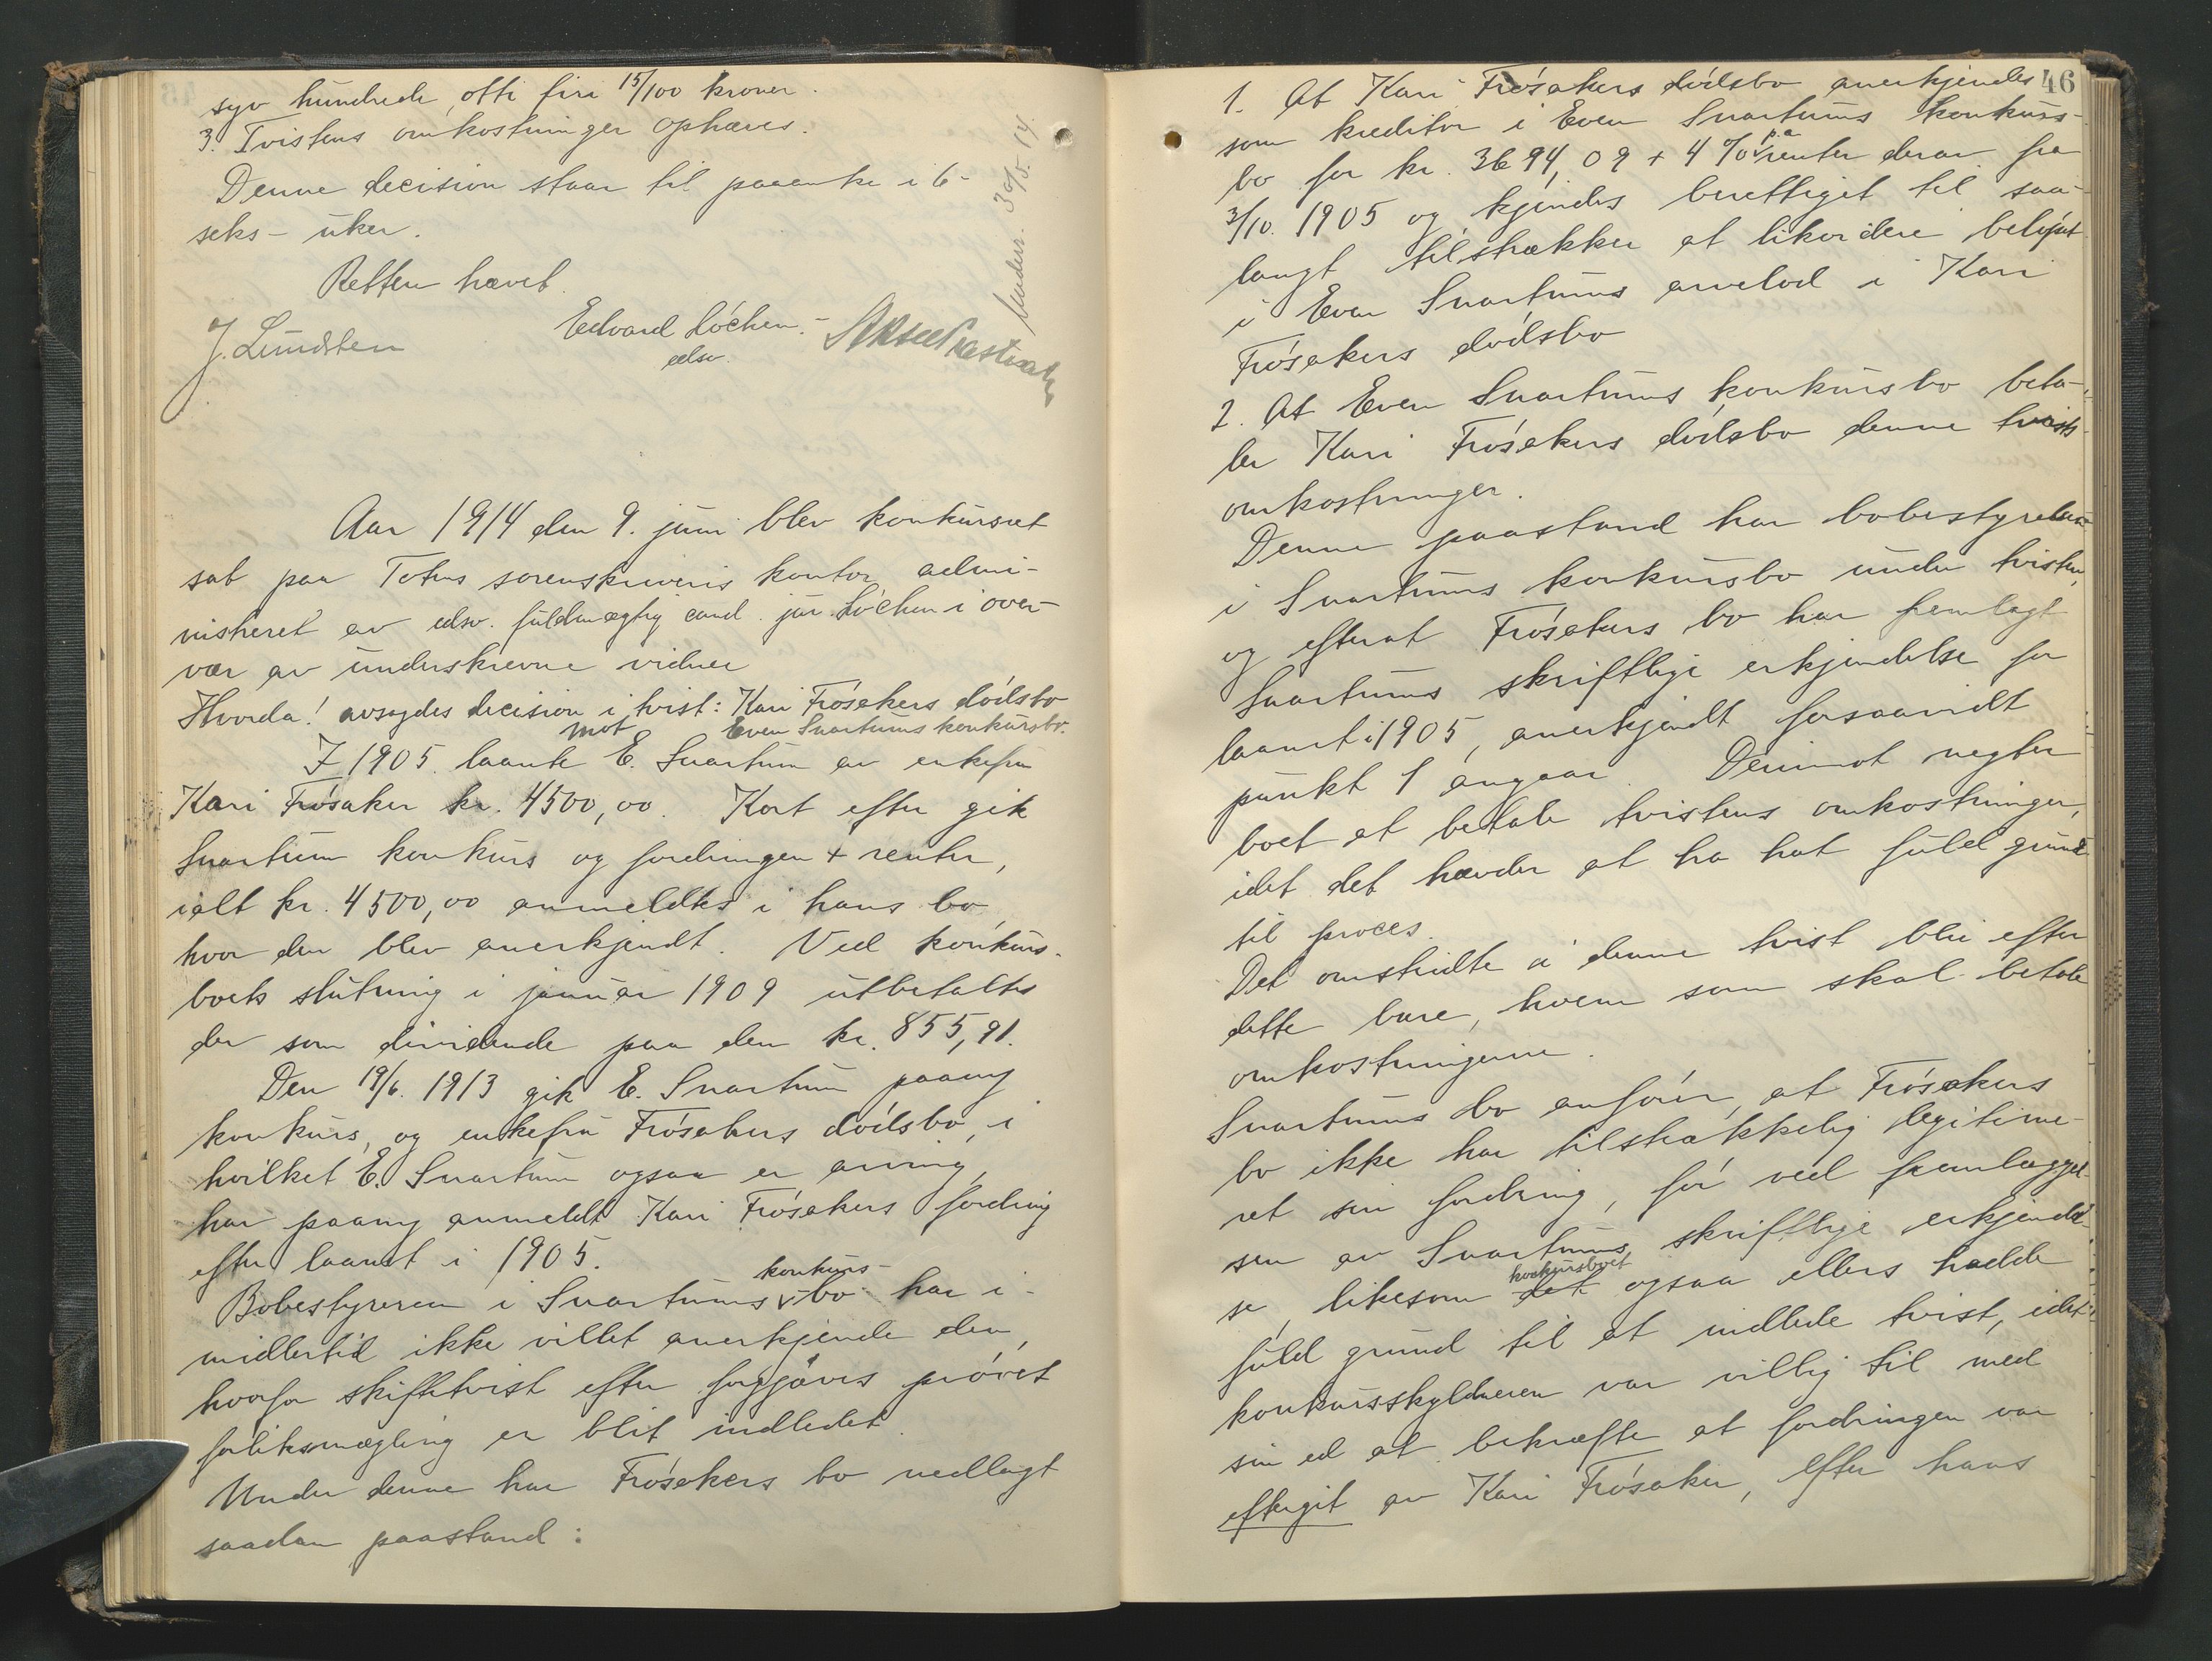 syv hundrede otti fire 15/100 kroner.
3. Tvistens omkostninger ophæves.
Denne decision staar til paaanke i 6-
seks- uker.
Retten hævet.
J. Lundsten
Edvard Löchen.-
edsv.
Undersr. 30/5. 14.
Aar 1914 den 9. juni blev konkursret
sat paa Totens sorenskriveris kontor admi-
nistreret av edsv. fuldmægtig cand. jur. Löchen i over-
vær av underskrevne vidner
Hvorda! avsagdes decision i tvist: Kari Frøsakers dødsbo
mot Even Svartums konkursbo.
I 1905 laante E. Svartum av enkefru
Kari Frøsaker kr. 4500,00. Kort efter gik
Svartum konkurs og fordringen + renter,
ialt kr. 4500,00 anmeldtes i hans bo,
hvor den blev anerkjendt. Ved konkurs-
boets slutning i januar 1909 utbetaltes
der som dividende paa den kr. 855,91.
Den 19/6. 1913 gik E. Svartum paany
konkurs, og enkefru Frøsakers dødsbo, i
hvilket E. Svartum ogsaa er arving,
har paany anmeldt Kari Frøsakers fordring
efter laanet i 1905.
Bobestyreren i Svartums konkurs-bo har i-
midlertid ikke villet anerkjende den,
hvorfor skiftetvist efter forgjæves prøvet
forliksmægling er blit indledet.
Under denne har Frøsakers bo nedlagt
saadan paastand:
46
1. At Kari Frøsakers dødsbo anerkjendes
som kreditor i Even Svartums konkurs-
bo for kr. 3694,09 + 4 % p.a. renter derav fra
3/10. 1905 og kjendes berettiget til saa-
langt tilstrækker at likvidere beløpet
i Even Svartums arvelod i Kari
Frøsakers dødsbo
2. At Even Svartums konkursbo beta-
ler Kari Frøsakers dødsbo denne tvists
omkostninger.
Denne paastand har bobestyrelsen
i Svartums konkursbo under tvisten,
og efterat Frøsakers bo har fremlagt
Svartums skriftlige erkjendelse for
laanet i 1905, anerkjendt forsaavidt
punkt 1 angaar. Derimot negter
boet at betale tvistens omkostninger,
idet det hævder at ha hat fuld grund
til proces.
Det omstridte i denne tvist blir efter
dette bare, hvem som skal betale
omkostningerne.
Svartums bo anfører, at Frøsakers
bo ikke har tilstrækkelig legitime-
ret sin fordring, før ved fremlæggel-
sen av Svartums skriftlige erkjendel-
se, likesom konkursboet ogsaa ellers hadde
fuld grund til at indlede tvist, idet
konkursskyldneren var villig til med
sin ed at bekræfte at fordringen var
eftergit av Kari Frøsaker, efter hans